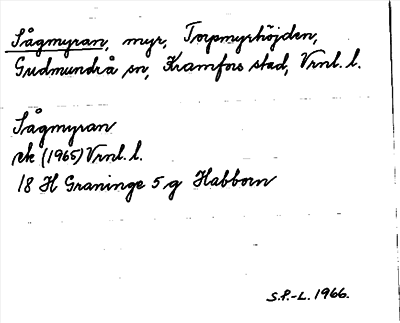 Sågmyran, myr, Torpmyrhöjden,
Gudmundrå sn, Kramfors stad, Vrnl. l.
Sågmyran
ek (1965) Vrnl. l.
18 H Graninge 5 g Habborn
S.P.-L. 1966.